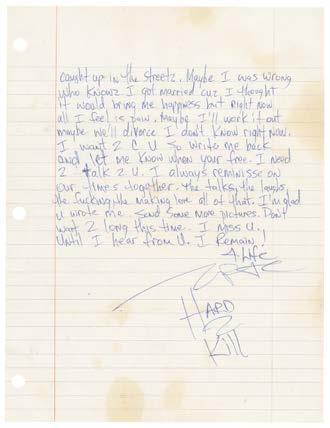 caught up in the Streetz. Maybe I was wrong
who knowz I got married cuz I thought
it would bring me happiness but right now
all I feel is pain. Maybe I'll work it out
maybe we'll divorce I don't know right now.
I want 2 C U So write me back
and let me know when your free. I need
2 talk 2 U. I always reminisse on
our times together. the talks, the laughs,
the fucking the making love all of that. I'm glad
u wrote me. Send Some more pictures. Don't
wait 2 long this time. I miss U.
Until I hear from U. I Remain!
4 Life
HARD
2
Kill